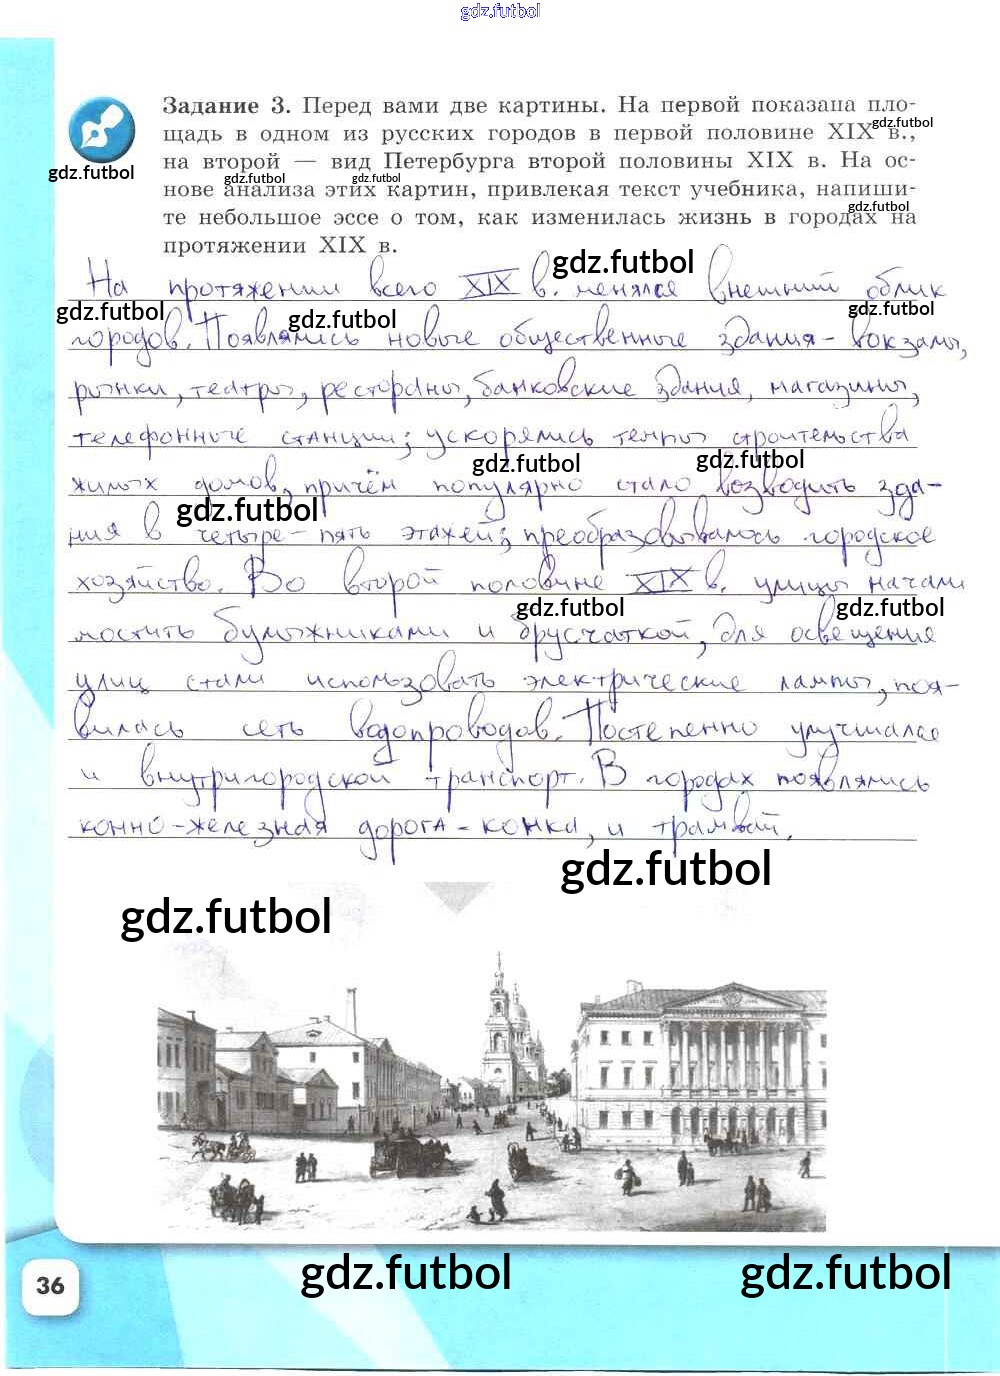 gdz.futbol
Задание 3. Перед вами две картины. На первой показана пло-
щадь в одном из русских городов в первой половине XIX в.,
gdz.futbol
на второй — вид Петербурга второй половины XIX в. На ос-
gdz.futbol
gdz.futbol
gdz.futbol
нове анализа этих картин, привлекая текст учебника, напиши-
те небольшое эссе о том, как изменилась жизнь в городах на
gdz.futbol
протяжении XIX в.
gdz.futbol
На протяжении всего XIX в. менялся внешний облик
gdz.futbol
gdz.futbol
gdz.futbol
городов. Появлялись новые общественные здания - вокзалы,
рынки, театры, рестораны, банковские здания, магазины,
телефонные станции; ускорялись темпы строительства
gdz.futbol
gdz.futbol
жилых домов, причём популярно стало возводить зда-
gdz.futbol
ния в четыре-пять этажей; преобразовывалось городское
хозяйство. Во второй половине XIX в. улицы начали
gdz.futbol
gdz.futbol
мостить булыжниками и брусчаткой, для освещения
улиц стали использовать электрические лампы, поя-
вилась сеть водопроводов. Постепенно улучшался
и внутригородской транспорт. В городах появлялись
конно-железная дорога - конка, и трамвай.
gdz.futbol
gdz.futbol
gdz.futbol
gdz.futbol
36